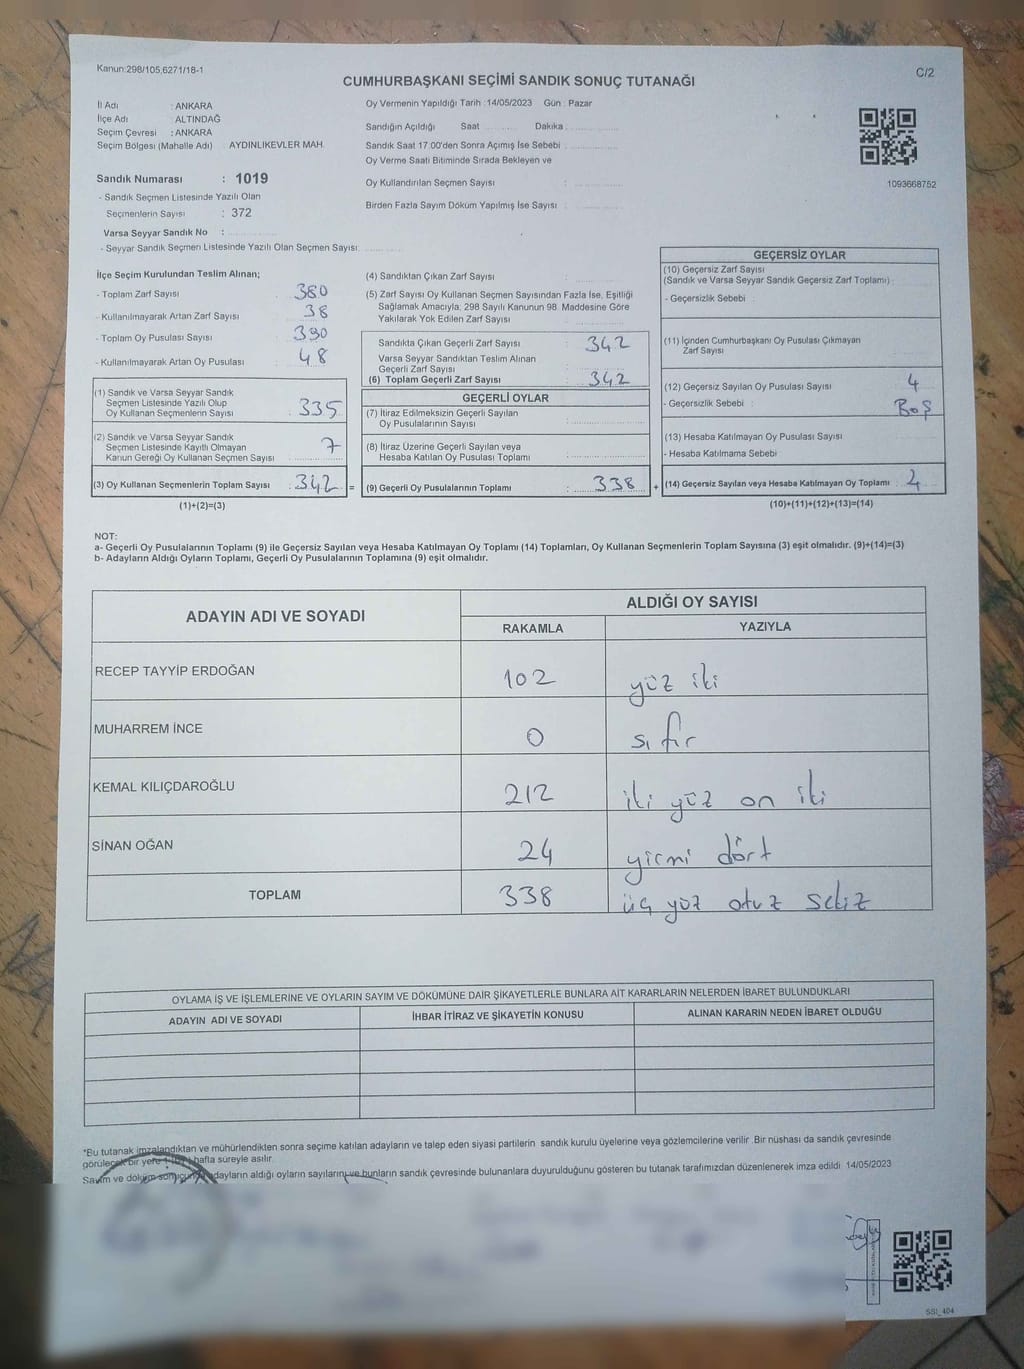 Kanun:298/105,6271/18-1
C/2
CUMHURBAŞKANI SEÇİMİ SANDIK SONUÇ TUTANAĞI
İl Adı : ANKARA
İlçe Adı : ALTINDAĞ
Seçim Çevresi : ANKARA
Seçim Bölgesi (Mahalle Adı) : AYDINLIKEVLER MAH.
Sandık Numarası : 1019
- Sandık Seçmen Listesinde Yazılı Olan
Seçmenlerin Sayısı : 372
Varsa Seyyar Sandık No :
- Seyyar Sandık Seçmen Listesinde Yazılı Olan Seçmen Sayısı:
Oy Vermenin Yapıldığı Tarih :14/05/2023 Gün : Pazar
Sandığın Açıldığı Saat Dakika
Sandık Saat 17.00'den Sonra Açımış İse Sebebi :
Oy Verme Saati Bitiminde Sırada Bekleyen ve
Oy Kullandırılan Seçmen Sayısı :
Birden Fazla Sayım Döküm Yapılmış İse Sayısı :
1093668752
İlçe Seçim Kurulundan Teslim Alınan;
- Toplam Zarf Sayısı : 380
- Kullanılmayarak Artan Zarf Sayısı : 38
- Toplam Oy Pusulası Sayısı : 390
- Kullanılmayarak Artan Oy Pusulası : 48
(1) Sandık ve Varsa Seyyar Sandık
Seçmen Listesinde Yazılı Olup
Oy Kullanan Seçmenlerin Sayısı : 335
(2) Sandık ve Varsa Seyyar Sandık
Seçmen Listesinde Kayıtlı Olmayan
Kanun Gereği Oy Kullanan Seçmen Sayısı : 7
(3) Oy Kullanan Seçmenlerin Toplam Sayısı : 342 =
(1)+(2)=(3)
(4) Sandıktan Çıkan Zarf Sayısı :
(5) Zarf Sayısı Oy Kullanan Seçmen Sayısından Fazla İse, Eşitliği
Sağlamak Amacıyla; 298 Sayılı Kanunun 98. Maddesine Göre
Yakılarak Yok Edilen Zarf Sayısı :
Sandıkta Çıkan Geçerli Zarf Sayısı : 342
Varsa Seyyar Sandıktan Teslim Alınan
Geçerli Zarf Sayısı :
(6) Toplam Geçerli Zarf Sayısı : 342
GEÇERLİ OYLAR
(7) İtiraz Edilmeksizin Geçerli Sayılan
Oy Pusulalarının Sayısı :
(8) İtiraz Üzerine Geçerli Sayılan veya
Hesaba Katılan Oy Pusulası Toplamı :
(9) Geçerli Oy Pusulalarının Toplamı : 338 +
GEÇERSİZ OYLAR
(10) Geçersiz Zarf Sayısı
(Sandık ve Varsa Seyyar Sandık Geçersiz Zarf Toplamı) :
- Geçersizlik Sebebi :
(11) İçinden Cumhurbaşkanı Oy Pusulası Çıkmayan
Zarf Sayısı :
(12) Geçersiz Sayılan Oy Pusulası Sayısı : 4
- Geçersizlik Sebebi : Boş
(13) Hesaba Katılmayan Oy Pusulası Sayısı
- Hesaba Katılmama Sebebi
(14) Geçersiz Sayılan veya Hesaba Katılmayan Oy Toplamı : 4
(10)+(11)+(12)+(13)=(14)
NOT:
a- Geçerli Oy Pusulalarının Toplamı (9) ile Geçersiz Sayılan veya Hesaba Katılmayan Oy Toplamı (14) Toplamları, Oy Kullanan Seçmenlerin Toplam Sayısına (3) eşit olmalıdır. (9)+(14)=(3)
b- Adayların Aldığı Oyların Toplamı, Geçerli Oy Pusulalarının Toplamına (9) eşit olmalıdır.
ADAYIN ADI VE SOYADI
ALDIĞI OY SAYISI
RAKAMLA YAZIYLA
RECEP TAYYİP ERDOĞAN 102 yüz iki
MUHARREM İNCE 0 sıfır
KEMAL KILIÇDAROĞLU 212 iki yüz on iki
SİNAN OĞAN 24 yirmi dört
TOPLAM 338 üç yüz otuz sekiz
OYLAMA İŞ VE İŞLEMLERİNE VE OYLARIN SAYIM VE DÖKÜMÜNE DAİR ŞİKAYETLERLE BUNLARA AİT KARARLARIN NELERDEN İBARET BULUNDUKLARI
ADAYIN ADI VE SOYADI İHBAR İTİRAZ VE ŞİKAYETİN KONUSU ALINAN KARARIN NEDEN İBARET OLDUĞU
*Bu tutanak imzalandıktan ve mühürlendikten sonra seçime katılan adayların ve talep eden siyasi partilerin sandık kurulu üyelerine veya gözlemcilerine verilir. Bir nüshası da sandık çevresinde
görülecek bir yere hafta süreyle asılır.
Sayım ve döküm adayların aldığı oyların sayılarını ve bunların sandık çevresinde bulunanlara duyurulduğunu gösteren bu tutanak tarafımızdan düzenlenerek imza edildi 14/05/2023
SSI_404